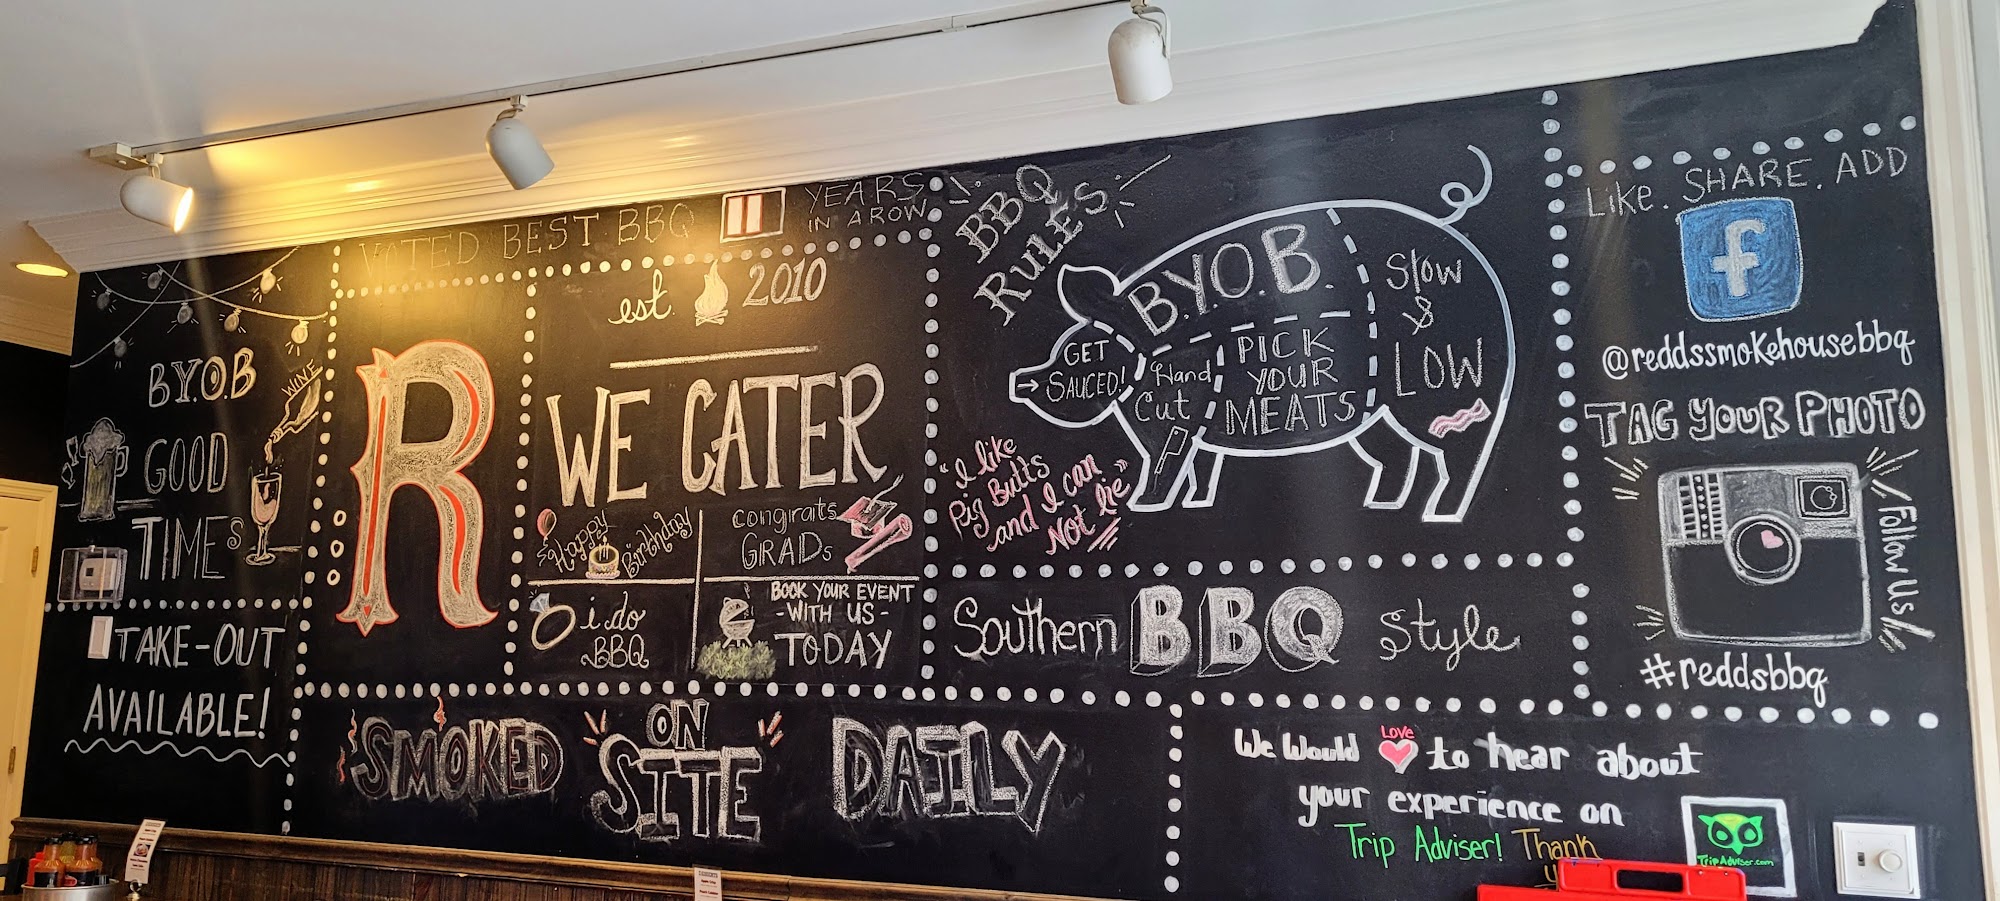 VOTED BEST BBQ 11 YEARS
IN A ROW
B.Y.O.B
WINE
GOOD
TIMES
TAKE-OUT
AVAILABLE!
R
est. 2010
WE CATER
Happy
Birthday
congrats
GRADs
i do
BBQ
BOOK YOUR EVENT
-WITH US-
TODAY
SMOKED
ON
SITE
DAILY
BBQ
RULES
B.Y.O.B.
GET
SAUCED!
Hand
Cut
PICK
YOUR
MEATS
Slow
&
LOW
"I like
Pig Butts
and I can
Not lie"
Southern BBQ Style
Like. SHARE. ADD
f
@reddssmokehousebbq
TAG YOUR PHOTO
Follow Us!
#reddsbbq
Love
We Would to hear about
your experience on
Trip Adviser! Thank
TripAdviser.com